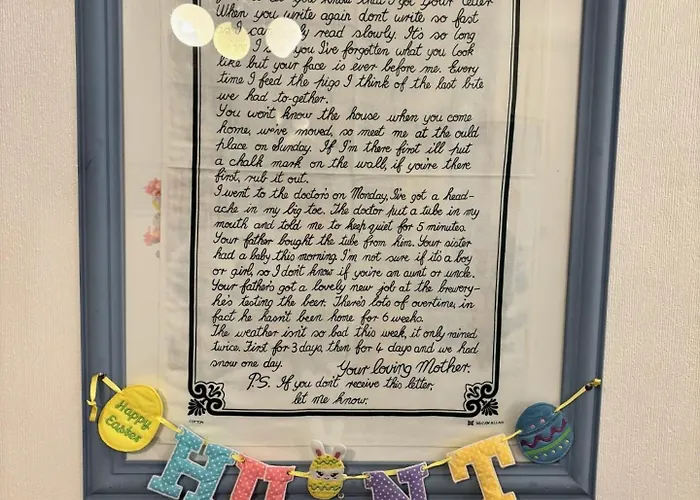 let you know that I got your letter
When you write again don't write so fast
I can only read slowly. It's so long
I you I've forgotten what you look
like but your face is ever before me. Every
time I feed the pigs I think of the last bite
we had to-gether.
You won't know the house when you come
home, we've moved, so meet me at the ould
place on Sunday. If I'm there first ill put
a chalk mark on the wall, if you're there
first, rub it out.
I went to the doctor's on Monday, I've got a head-
ache in my big toe. The doctor put a tube in my
mouth and told me to keep quiet for 5 minutes.
Your father bought the tube from him. Your sister
had a baby this morning I'm not sure if it's a boy
or girl, so I don't know if you're an aunt or uncle.
Your father's got a lovely new job at the brewery-
he's testing the beer. There's lots of overtime, in
fact he hasn't been home for 6 weeks.
The weather isn't so bad this week, it only rained
twice. First for 3 days, then for 4 days and we had
snow one day. Your loving Mother.
P.S. If you don't receive this letter,
let me know.
COTTON
Happy
Easter
HUNT